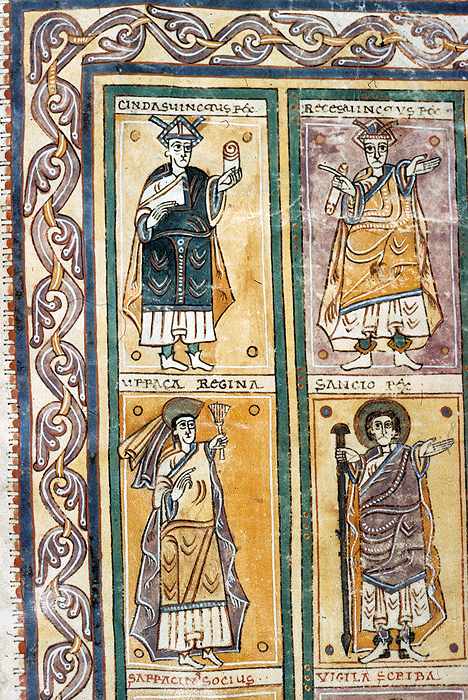 CINDASUINCTUS REX
RECESUINCTUS REX
URRACA REGINA
SANCIO REX
SARRACINUS SOCIUS
VIGILA SCRIBA